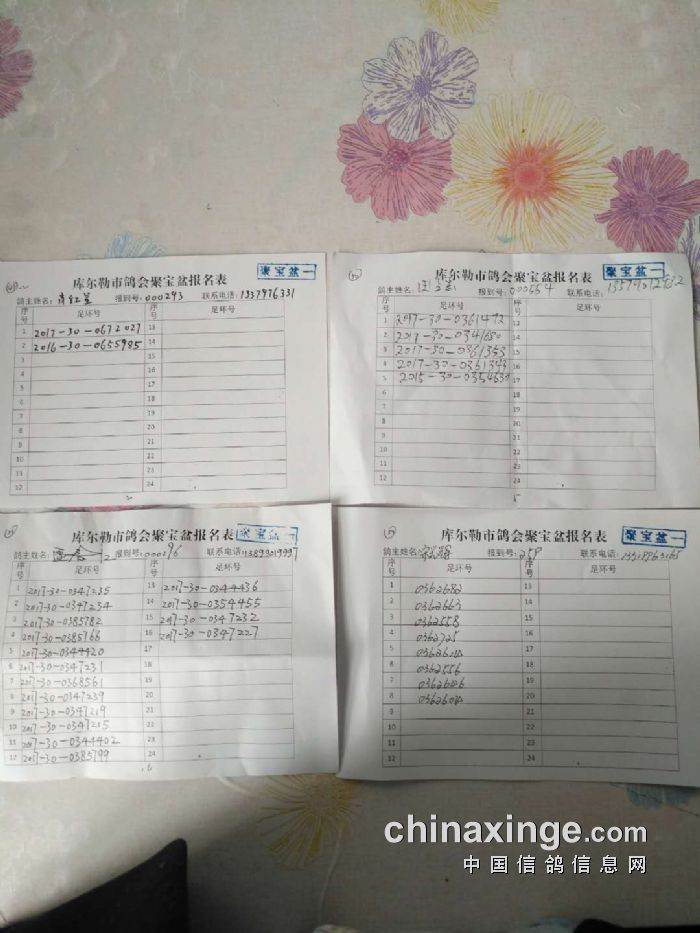 库尔勒市鸽会聚宝盆报名表
聚宝盆一
鸽主姓名: 报到号:000293 联系电话:1337976331
序号 足环号 序号 足环号
1 2017-30-0672027 13
2 2016-30-0655985 14
3 15
4 16
5 17
6 18
7 19
8 20
9 21
10 22
11 23
12 24
库尔勒市鸽会聚宝盆报名表
聚宝盆一
鸽主姓名: 报到号:000664 联系电话:
序号 足环号 序号 足环号
1 2017-30-0361472 13
2 2017-30-0341680 14
3 2017-30-0361353 15
4 2017-30-0361343 16
5 2015-30-0354630 17
6 18
7 19
8 20
9 21
10 22
11 23
12 24
库尔勒市鸽会聚宝盆报名表
聚宝盆一
鸽主姓名: 报到号:000196 联系电话:13899019997
序号 足环号 序号 足环号
1 2017-30-0347235 13 2017-30-0344436
2 2017-30-0347234 14 2017-30-0354455
3 2017-30-0385782 15 2017-30-0347232
4 2017-30-0385766 16 2017-30-0347227
5 2017-30-0344420 17
6 2017-30-0347231 18
7 2017-30-0368561 19
8 2017-30-0347239 20
9 2017-30-0347219 21
10 2017-30-0347215 22
11 2017-30-0344402 23
12 2017-30-0385799 24
库尔勒市鸽会聚宝盆报名表
聚宝盆一
鸽主姓名: 报到号: 联系电话:
序号 足环号 序号 足环号
1 0362682 13
2 0362663 14
3 0362558 15
4 0362725 16
5 17
6 0362556 18
7 19
8 20
9 21
10 22
11 23
12 24
chinaxinge.com
中国信鸽信息网